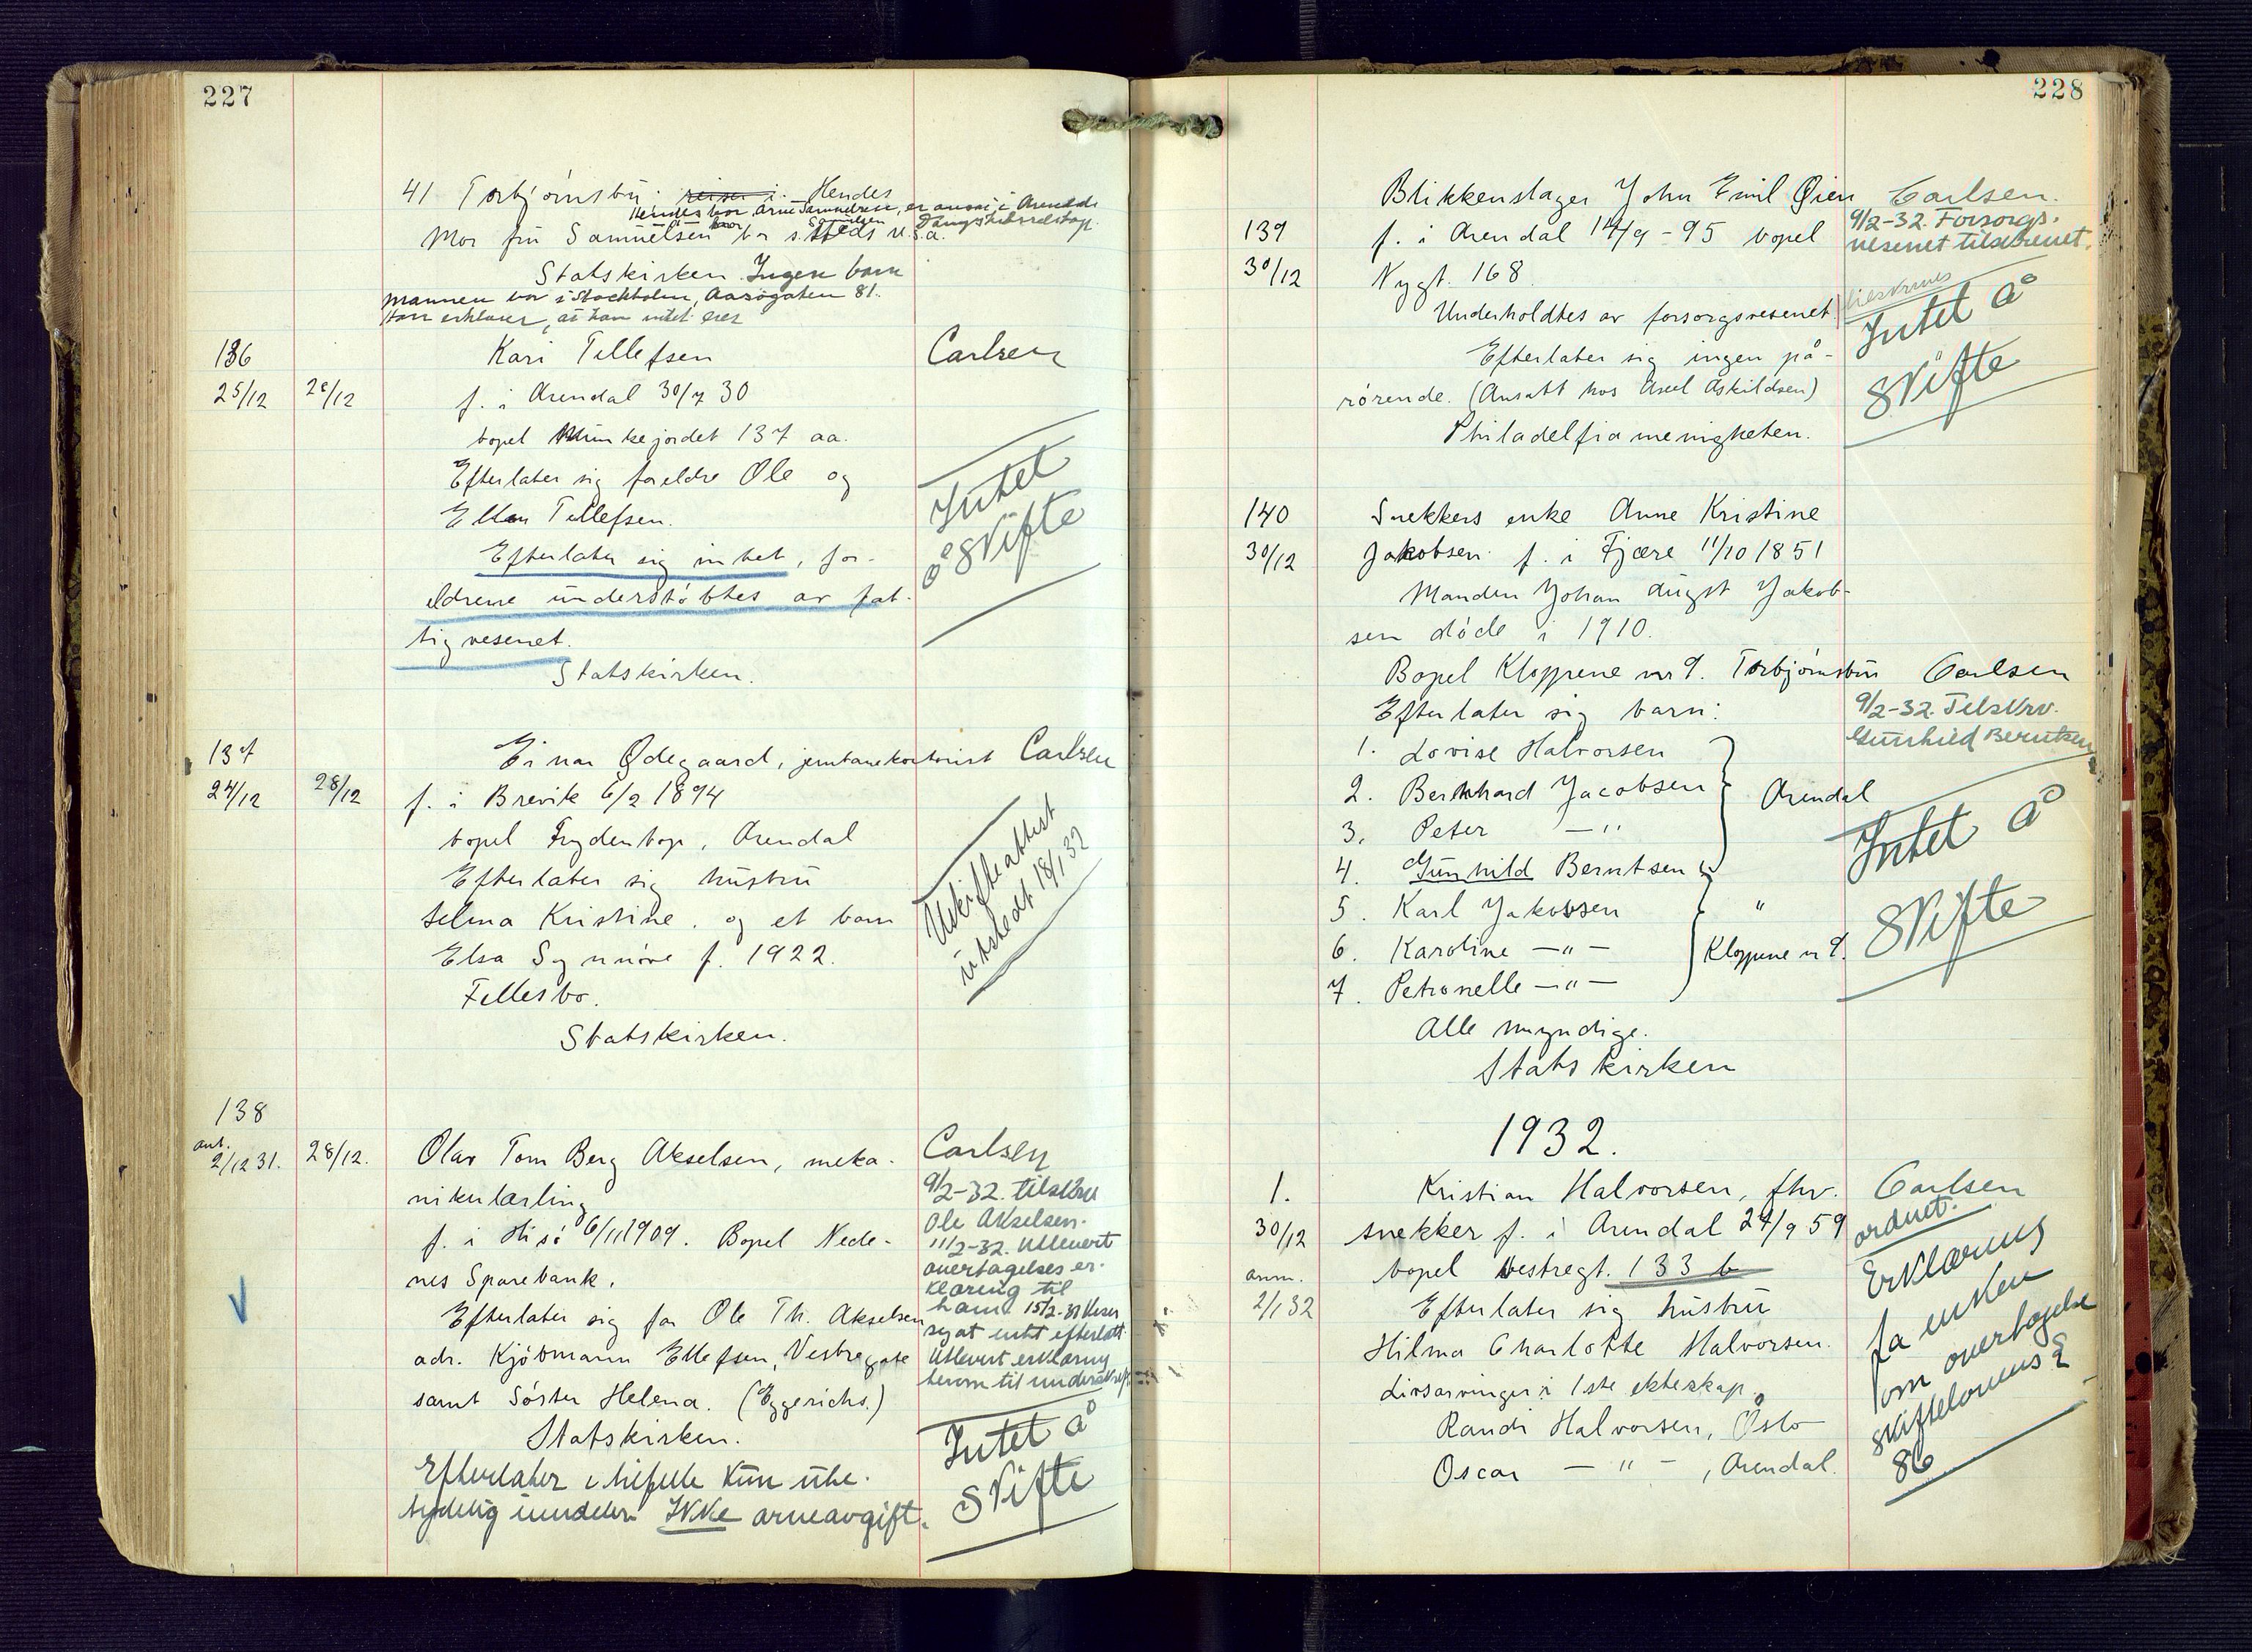 227
41 Torbjørnsbu. reiser i. Hendes
Hendes bror Arne Samuelsen, er ansat i Arendals
Dampskibsselskap.
Mor fru Samuelsen bor s. steds
Statskirken. Ingen barn
Mannen bor i Stockholm, Aasögatan 81.
Han erklærer, at hun intet eier
136
25/12
28/12
Kari Tellefsen
Carlsen
f. i Arendal 30/7 30
bopel Munkejordet 137 aa.
Efterlater sig foreldre Ole og
Ellen Tellefsen.
Efterlater sig intet, for-
eldrene understøttes av fat-
tigvesenet.
Statskirken.
Intet
å skifte
137
24/12
28/12
Einar Ødegaard, jernbanekontorist
Carlsen
f. i Brevik 6/2 1894
bopel Frydenborg, Arendal
Efterlater sig hustru
Selma Kristine. og et barn
Elsa Synnøve f. 1922.
Fellesbo.
Statskirken.
Uskifteattest
utstedt 18/1 32
138
ant.
2/12 31.
28/12.
Olav Tom Berg Akselsen, meka-
nikerlærling
f. i Hisø 6/11 1909. Bopel Nede-
nes Sparebank.
Efterlater sig far Ole Th. Akselsen
adr. Kjøbmann Ellefsen, Vestregate
samt Søster Helena. (Eggerichs.)
Statskirken.
Efterlater i tilfelle kun ube-
tydelig inndelen Ikke arveavgift.
Carlsen
9/2-32. tilskrev
Ole Akselsen.
11/2-32. Utlevert
overtagelses er-
klæring til
ham.
Utlevert erklæring
Intet å
skifte
228
139
30/12
Blikkenslager John Emil Øien
f. i Arendal 14/9-95 bopel
Nygt. 168
Underholdtes av forsorgsvesenet
Efterlater sig ingen på-
rørende. (Ansatt hos Axel Askildsen)
Philadelfiamenigheten.
Carlsen.
9/2-32. Forsorgs-
vesenet tilskrevet.
tilskrives
Intet å
skifte
140
30/12
Snekkers enke Anne Kristine
Jakobsen f. i Fjære 11/10 1851
Manden Johan Augst Jakob-
sen døde i 1910.
Bopel Kloppene nr 9. Torbjørnsbu
Efterlater sig barn:
1. Lovise Halvorsen
2. Bernhard Jacobsen
Arendal
3. Peter — "
4. Gunhild Berntsen
5. Karl Jakobsen
"
6. Karoline — " —
Kloppene n 9.
7. Petronelle — " —
Alle myndige.
Statskirken
Carlsen
9/2-32. Tilskrv.
Gunhild Berntsen
Intet å
skifte
1932.
1.
30/12
anm.
2/1 32
Kristian Halvorsen, fhv.
snekker f. i Arendal 27/9 59
bopel Vestregt. 133 b
Efterlater sig hustru
Hilma Charlotte Halvorsen.
Livsarvinger i 1ste ekteskap
Randi Halvorsen, Oslo
Oscar — " — , Arendal.
Carlsen
ordnet.
Erklæring
fra enken
om overtagelse
skiftelovens §
86